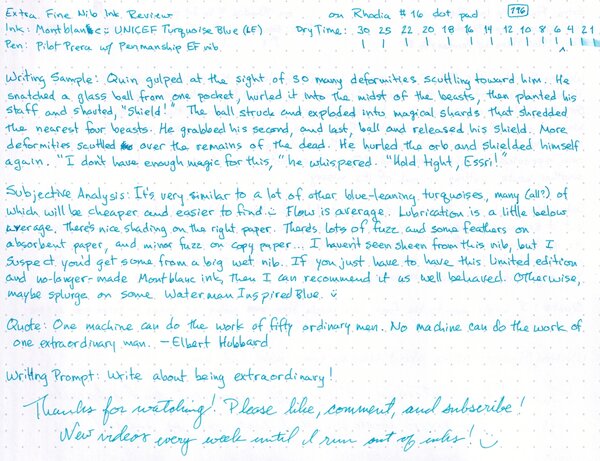 Extra Fine Nib Ink Review on Rhodia #16 dot pad 196
Ink: Montblanc - UNICEF Turquoise Blue (LE) Dry Time: 30 25 22 20 18 16 14 12 10 8 6 4 2 1
Pen: Pilot Prera w/ Penmanship EF nib.
Writing Sample: Quin gulped at the sight of so many deformities scuttling toward him. He
snatched a glass ball from one pocket, hurled it into the midst of the beasts, then planted his
staff and shouted, "Shield!" The ball struck and exploded into magical shards that shredded
the nearest four beasts. He grabbed his second, and last, ball and released his shield. More
deformities scuttled over the remains of the dead. He hurled the orb and shielded himself
again. "I don't have enough magic for this," he whispered. "Hold tight, Essri!"
Subjective Analysis: It's very similar to a lot of other blue-leaning turquoises, many (all?) of
which will be cheaper and easier to find. :) Flow is average. Lubrication is a little below
average. There's nice shading on the right paper. There's lots of fuzz and some feathers on
absorbent paper, and minor fuzz on copy paper... I haven't seen sheen from this nib, but I
suspect you'd get some from a big wet nib. If you just have to have this limited edition
and no-longer-made Montblanc ink, then I can recommend it as well behaved. Otherwise,
maybe splurge on some Waterman Inspired Blue. :)
Quote: One machine can do the work of fifty ordinary men. No machine can do the work of
one extraordinary man. - Elbert Hubbard
Writing Prompt: Write about being extraordinary!
Thanks for watching! Please like, comment, and subscribe!
New videos every week until I run out of inks! :)